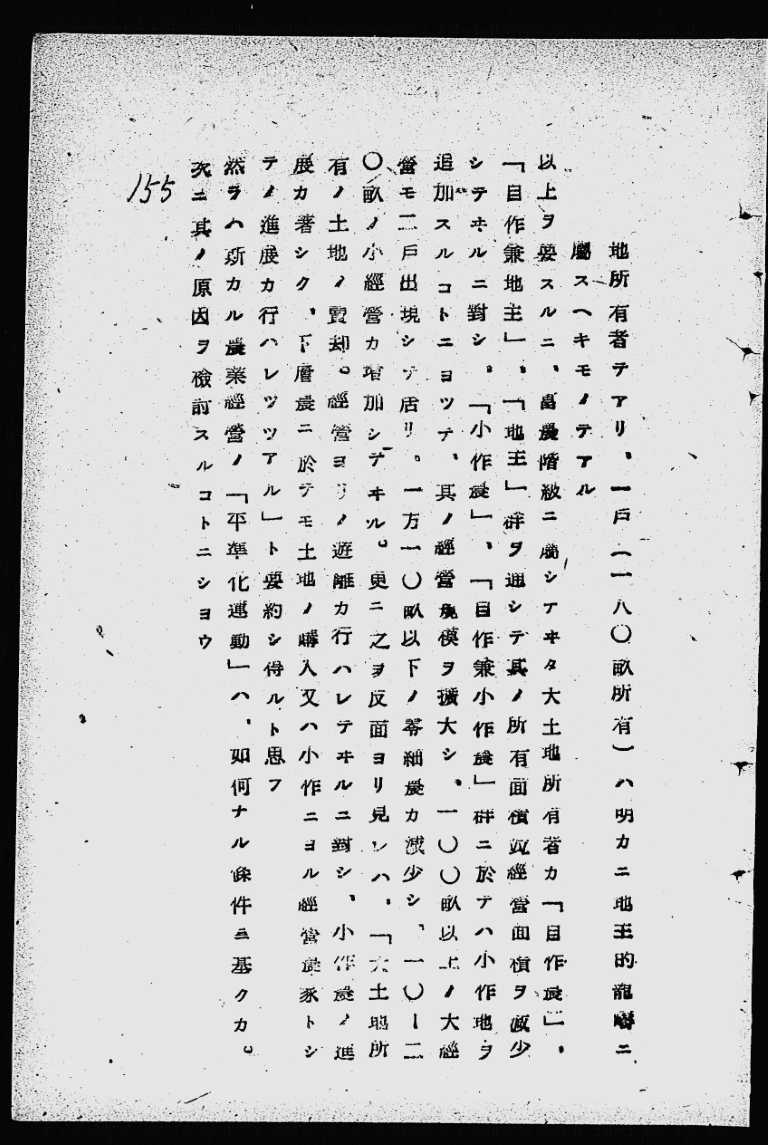 地所有者テアリ、一戸（一八〇畝所有）ハ明カニ地主的龍疇ニ
屬スヘキモノテアル
以上ヲ要スルニ、富農階級ニ屬シテヰタ大土地所有者カ「自作農」、
「自作兼地主」、「地主」群ヲ通シテ其ノ所有面積竝經營面積ヲ減少
シテヰルニ對シ、「小作農」、「自作兼小作農」群ニ於テハ小作地ヲ
追加スルコトニヨツテ、其ノ經營規模ヲ擴大シ、一〇〇畝以上ノ大經
營モ二戸出現シテ居リ。一方一〇畝以下ノ零細農カ減少シ、一〇ー二
〇畝ノ小經營カ增加シテヰル。更ニ之ヲ反面ヨリ見レハ、「大土地所
有ノ土地ノ賣却。經營ヨリノ遊離カ行ハレテヰルニ對シ、小作農ノ進
展カ著シク、下層農ニ於テモ土地ノ購入又ハ小作ニヨル經營農家トシ
テノ進展カ行ハレツツアル」ト要約シ得ルト思フ
然ラハ斯カル農業經營ノ「平準化運動」ハ、如何ナル條件ニ基クカ。
次ニ其ノ原因ヲ檢討スルコトニシヨウ
155